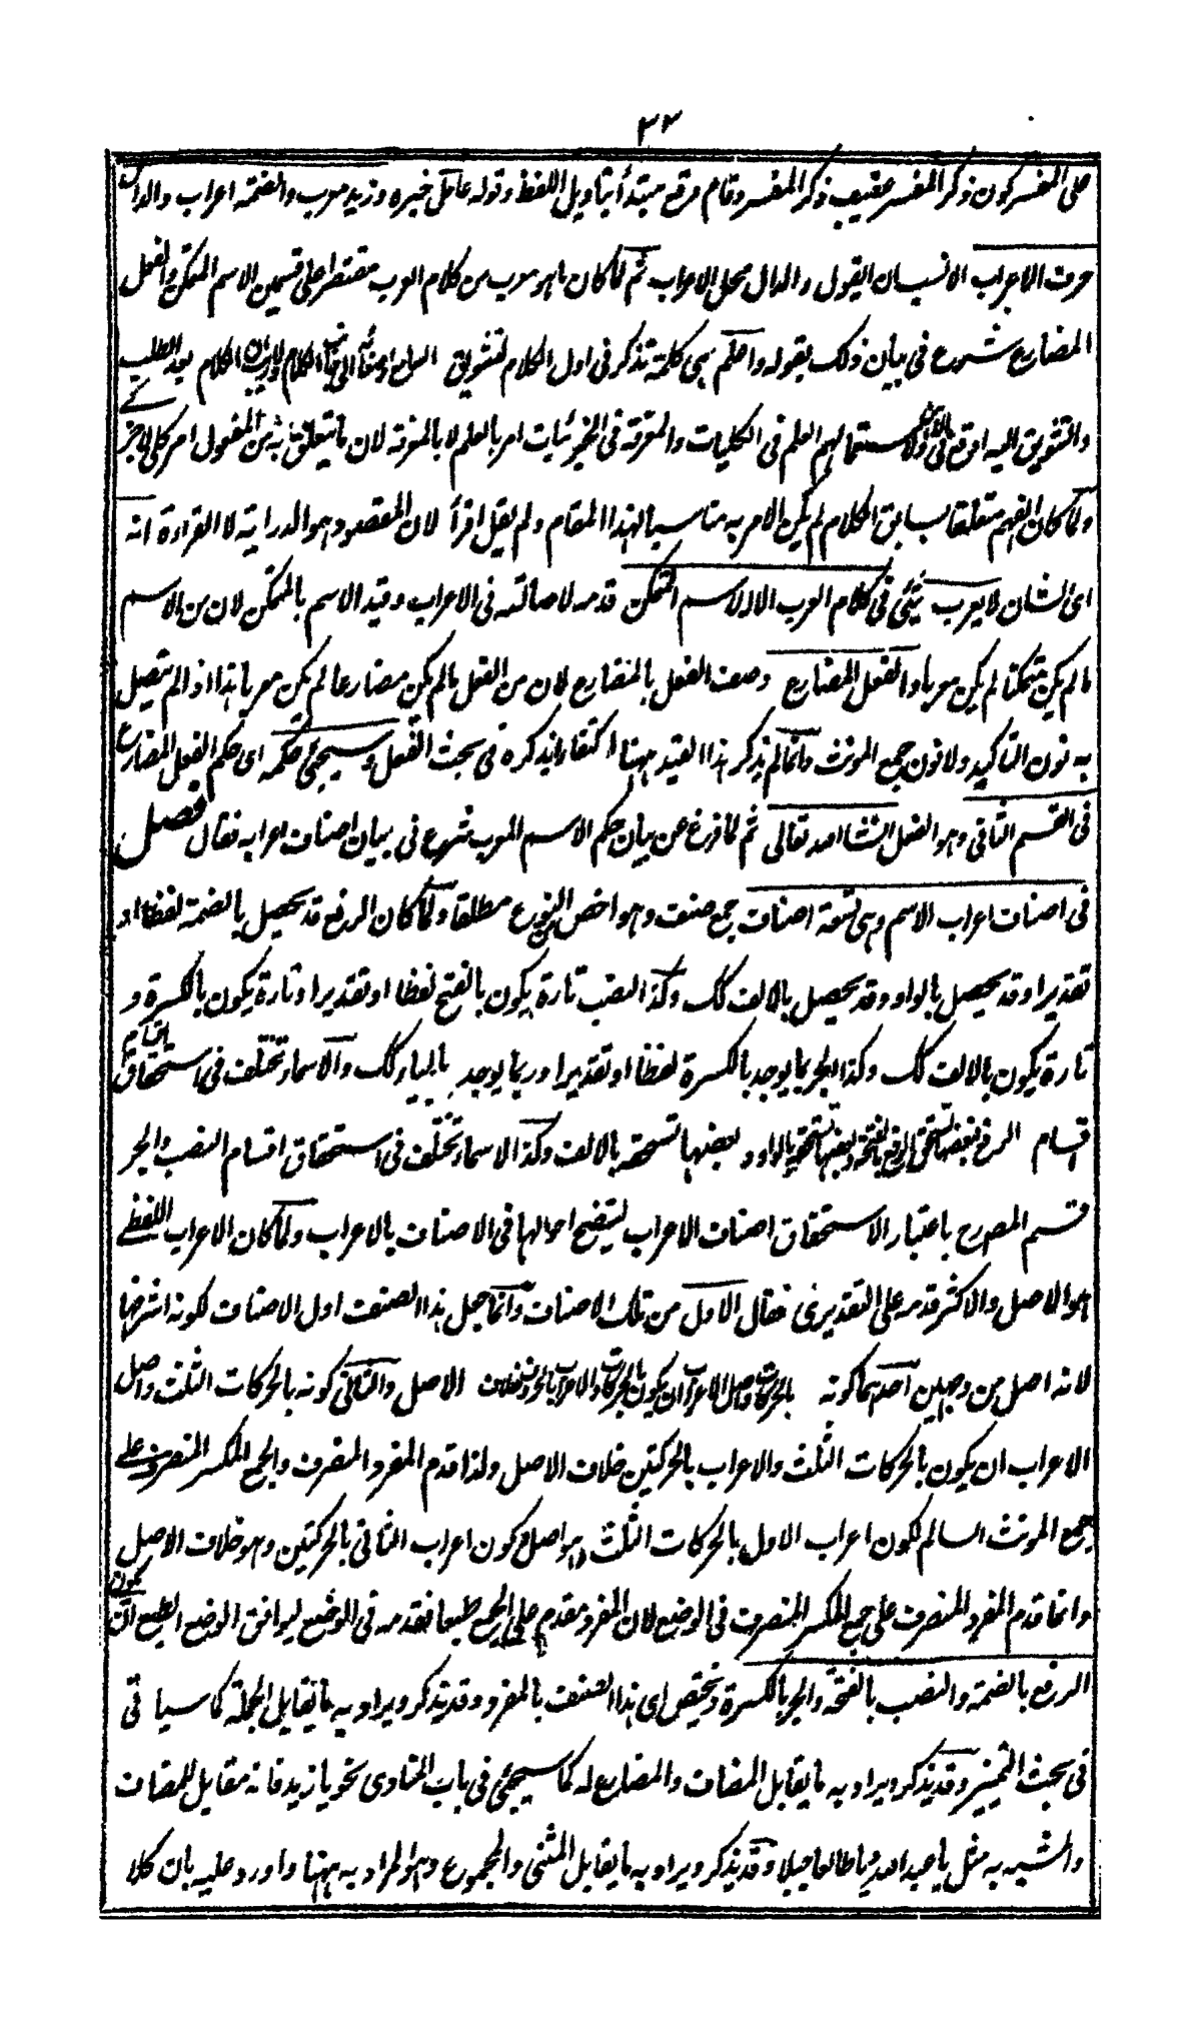 ٣٢
على المفسر كون ذكر المفسر عقيب ذكر المفسر وقام مرفع مبتدأ بتاويل اللفظ وقوله عامل خبره وزيد معرب والضمة اعراب والدال
حرف الاعراب الانسب ان يقول والدال محل الاعراب ثم لما كان ما هو معرب من كلام العرب مقتصرا على قسمين الاسم المتمكن والفعل
المضارع شرع فى بيان ذلك بقوله واعلم هى كلمة تذكر فى اول الكلام لتشويق السامع الكلام بعد الطلب
والتشويق اليه اوقع فى العلم فى الكليات والمعرفة فى الجزئيات امر بالعلم لا بالمعرفة لان ما يتعلق به من المفعول امر كلى لا جز
ولما كان الفهم متعلقا بسابق الكلام لم يكن الامر به مناسبا لهذا المقام ولم يقل اقرأ لان المقصود هو الدراية لا القراءة انه
اى الشان لا يعرب شئ فى كلام العرب الا الاسم المتمكن قدمه لاصالته فى الاعراب وقيد الاسم بالمتمكن لان من الاسم
ما لم يكن متمكنا لم يكن معربا والفعل المضارع وصف الفعل بالمضارع لان من الفعل ما لم يكن مضارعا لم يكن معربا هذا اذا لم يتصل
به نون التاكيد ولا نون جمع المونث وانما لم يذكر هذا القيد ههنا اكتفاء بذكره فى بحث الفعل وسيجئ حكمه اى حكم الفعل المضارع
فى القسم الثانى وهو الفعل انشاء الله تعالى ثم لما فرغ عن بيان حكم الاسم المعرب شرع فى بيان اصناف اعرابه فقال فصل
فى اصناف اعراب الاسم وهى تسعة اصناف جمع صنف وهو اخص من النوع مطلقا ولما كان الرفع قد يحصل بالضمة لفظا او
تقديرا وقد يحصل بالواو وقد يحصل بالالف كك وكذا النصب تارة يكون بالفتح لفظا او تقديرا وتارة يكون بالكسرة و
تارة يكون بالالف كك وكذا الجر بما يوجد بالكسرة لفظا او تقديرا وربما يوجد بالياء كك والاسماء تختلف فى استحقاق
اقسام الرفع فبعضها تستحق الرفع بالضمة وبعضها تستحقه بالواو و بعضها تستحقه بالالف وكذا الاسماء تختلف فى استحقاق اقسام النصب والجر
قسم المصرح باعتبار الاستحقاق اصناف الاعراب ليتضح احوالها فى الاصناف بالاعراب ولما كان الاعراب اللفظے
هو الاصل والاكثر قدمه على التقديرى فقال الاول من تلك الاصناف وانما جعل هذا الصنف اول الاصناف لكونه اشرفها
لانه اصل من وجهين احدهما كونه بالحركات واصل الاعراب ان يكون بالحركات والاعراب بالحروف خلاف الاصل والثانى كونه بالحركات الثلث واصل
الاعراب ان يكون بالحركات الثلث والاعراب بالحركتين خلاف الاصل ولذا قدم المفرد المنصرف والجمع المكسر المنصرف علے
جمع المونث السالم لكون اعراب الاول بالحركات الثلث وهو اصل وكون اعراب الثانى بالحركتين وهو خلاف الاصل
وانما قدم المفرد المنصرف على جمع المكسر المنصرف فى الوضع لان المفرد مقدم على الجمع طبعا فقدمه فى الوضع ليوافق الوضع الطبع ان يكون
الرفع بالضمة والنصب بالفتحة والجر بالكسرة ويختص اى هذا الصنف بالمفرد وقد يذكر ويراد به ما يقابل الجملة كما سياتى
فى بحث التميز وقد يذكر ويراد به ما يقابل المضاف والمضارع له كما سيجئ فى باب المنادى نحو يا زيد فانه مقابل للمضاف
والمشبه به مثل يا عبد الله ويا طالعا جبلا وقد يذكر ويراد به ما يقابل المثنى والمجموع وهو المراد به ههنا واورد عليه بان كلا